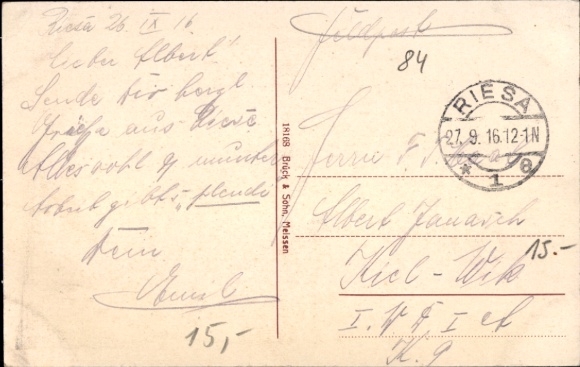 Riesa 26 IX 16.
Lieber Albert!
Sende Dir herzl.
Grüße aus Riesa
Alles wohl & munter
gibts
Dein
Emil
15,-
18168 Brück & Sohn, Meissen
Feldpost
84
RIESA
27.9.16.12-1N
* 1 e
Herrn
Albert Janasch
Kiel-Wik
15.-
I. W. D. I
K. 9